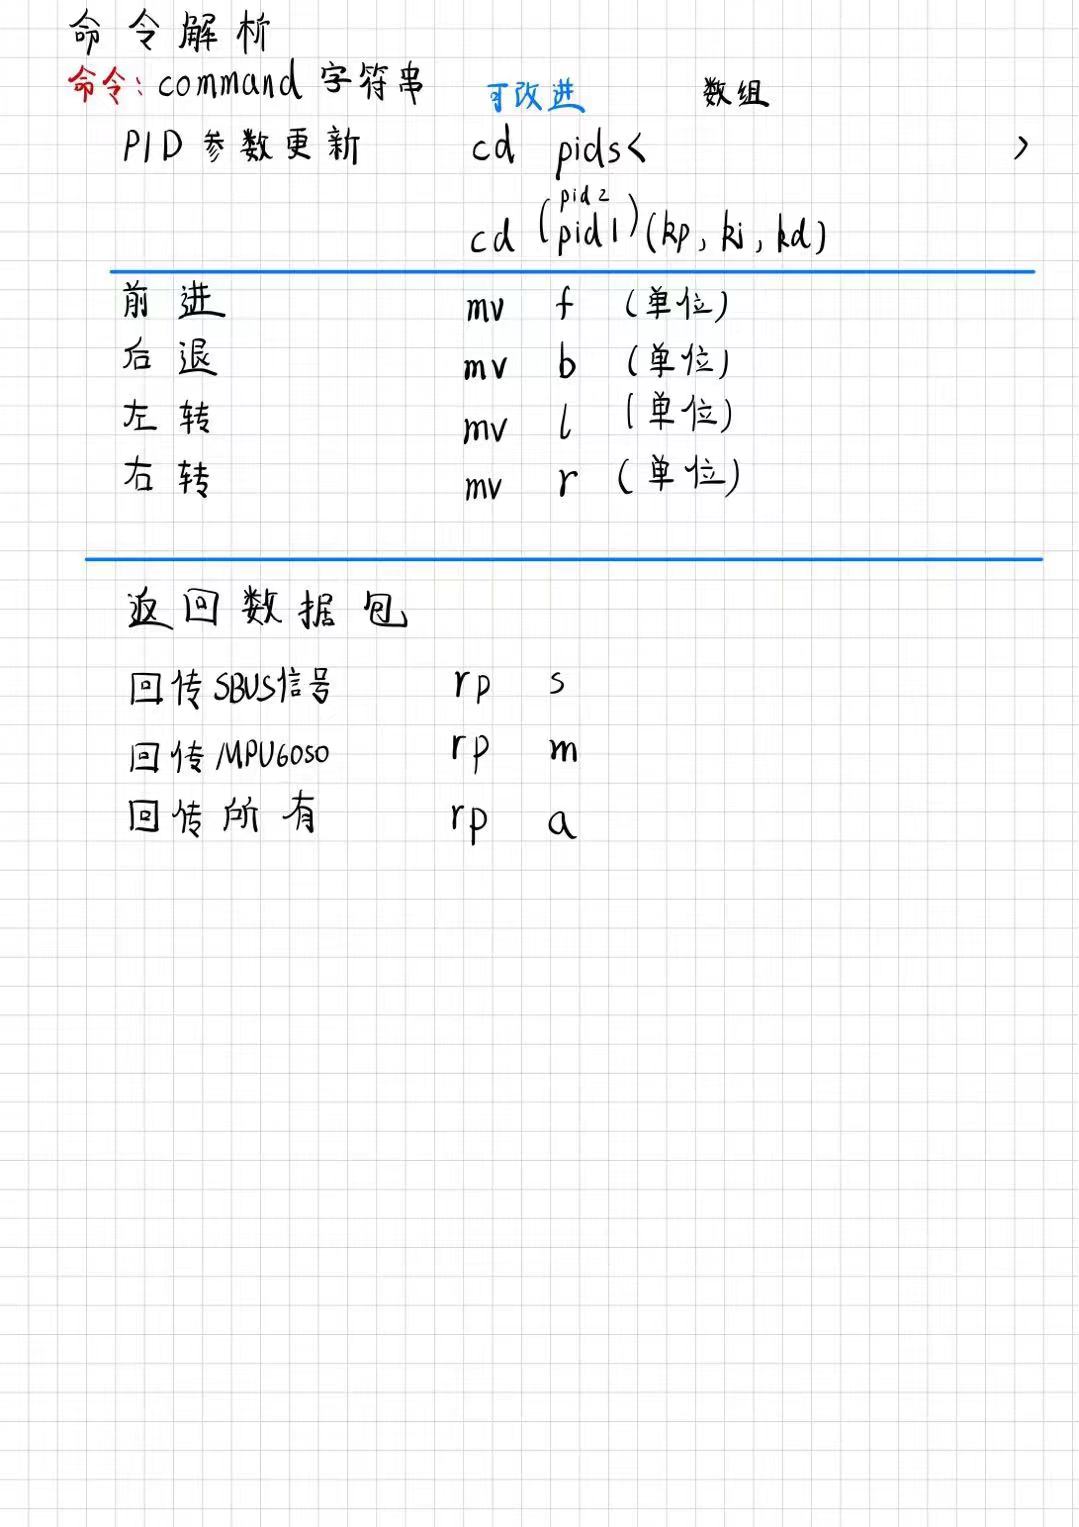 命令解析
命令: command 字符串 可改进 数组
PID 参数更新 cd pids< >
pid2
cd (pid1)(kp, ki, kd)
前进 mv f (单位)
后退 mv b (单位)
左转 mv l (单位)
右转 mv r (单位)
返回数据包
回传SBUS信号 rp s
回传MPU6050 rp m
回传所有 rp a